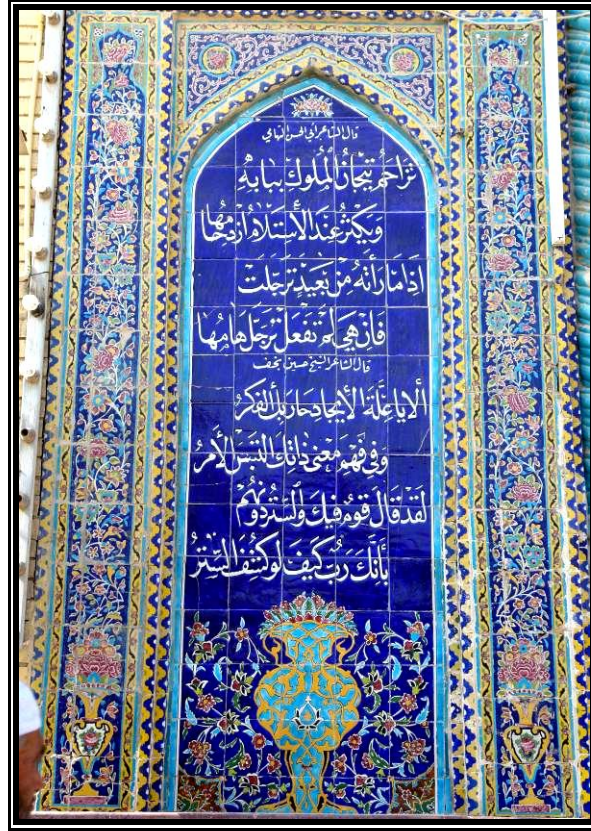 قال الشاعر ابي الحسن التهامي
تَزَاحَمُ تِيجَانُ المُلُوكِ بِبَابِهِ
وَيَكْثُرُ عِنْدَ الأَسْتِلَامِ ازْدِحَامُهَا
اِذَا مَا رَأَتْهُ مِنْ بَعِيدٍ تَرَجَّلَتْ
فَاِنْ هِيَ لَمْ تَفْعَلْ تَرَجَّلَ هَامُهَا
قال الشاعر الشيخ حسين نجف
أَلا يا عِلَّةَ الأيجادِ حارَ بِكَ الفِكْرُ
وَفِي فَهْمِ مَعْنى ذاتِكَ الْتَبَسَ الأَمْرُ
لَقَدْ قَالَ قَوْمٌ فِيكَ وَالسِّتْرُ دُونَهُمْ
بِأَنَّكَ رَبٌّ كَيْفَ لَوْ كُشِفَ السِّتْرُ